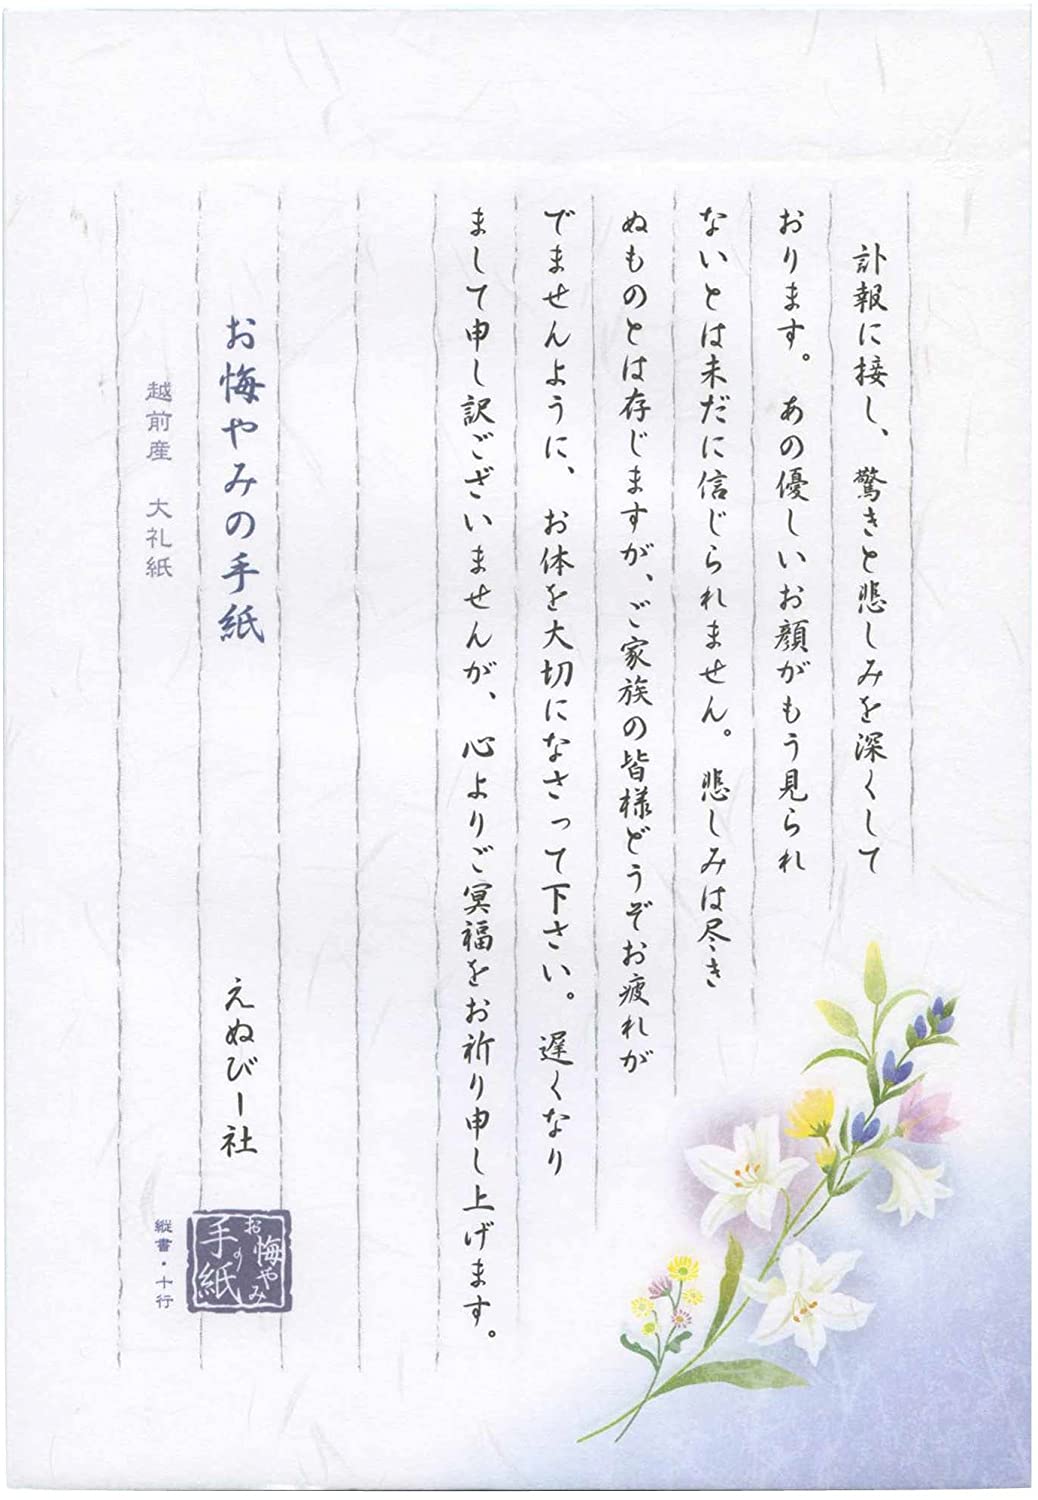 訃報に接し、驚きと悲しみを深くして
おります。あの優しいお顔がもう見られ
ないとは未だに信じられません。悲しみは尽き
ぬものとは存じますが、ご家族の皆様どうぞお疲れが
でませんように、お体を大切になさって下さい。遅くなり
まして申し訳ございませんが、心よりご冥福をお祈り申し上げます。
お悔やみの手紙
えぬびー社
お悔やみの
手紙
越前産 大礼紙
縦書・十行